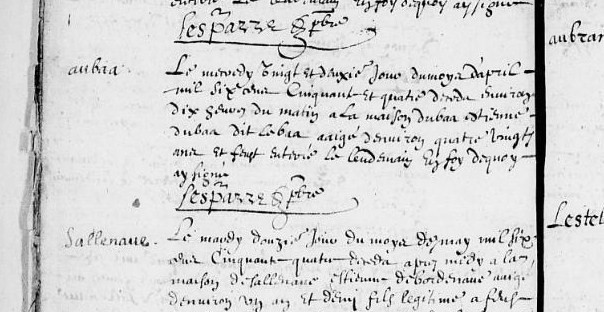 enterré le lendemain En foy dequoy ay signé
Lesparre pbre
aubaa. Le mecredy vingt et deuxie Jour du moys d'april
mil six cens Cinquant et quatre deceda environ
dix heures du matin a la maison dubaa estienne
dubaa dit lebaa aaigé d'environ quatre vingts
ans et feust enterré le lendemain En foy dequoy
ay signé
Lesparre pbre
Sallenave. Le mardy douzie Jour du moys de may mil six
cens Cinquant quatre deceda apres midy a la
maison de sallenave estienne de bordenave aaige
d'environ un an et demi fils legitime a feus
aubra
Lestel